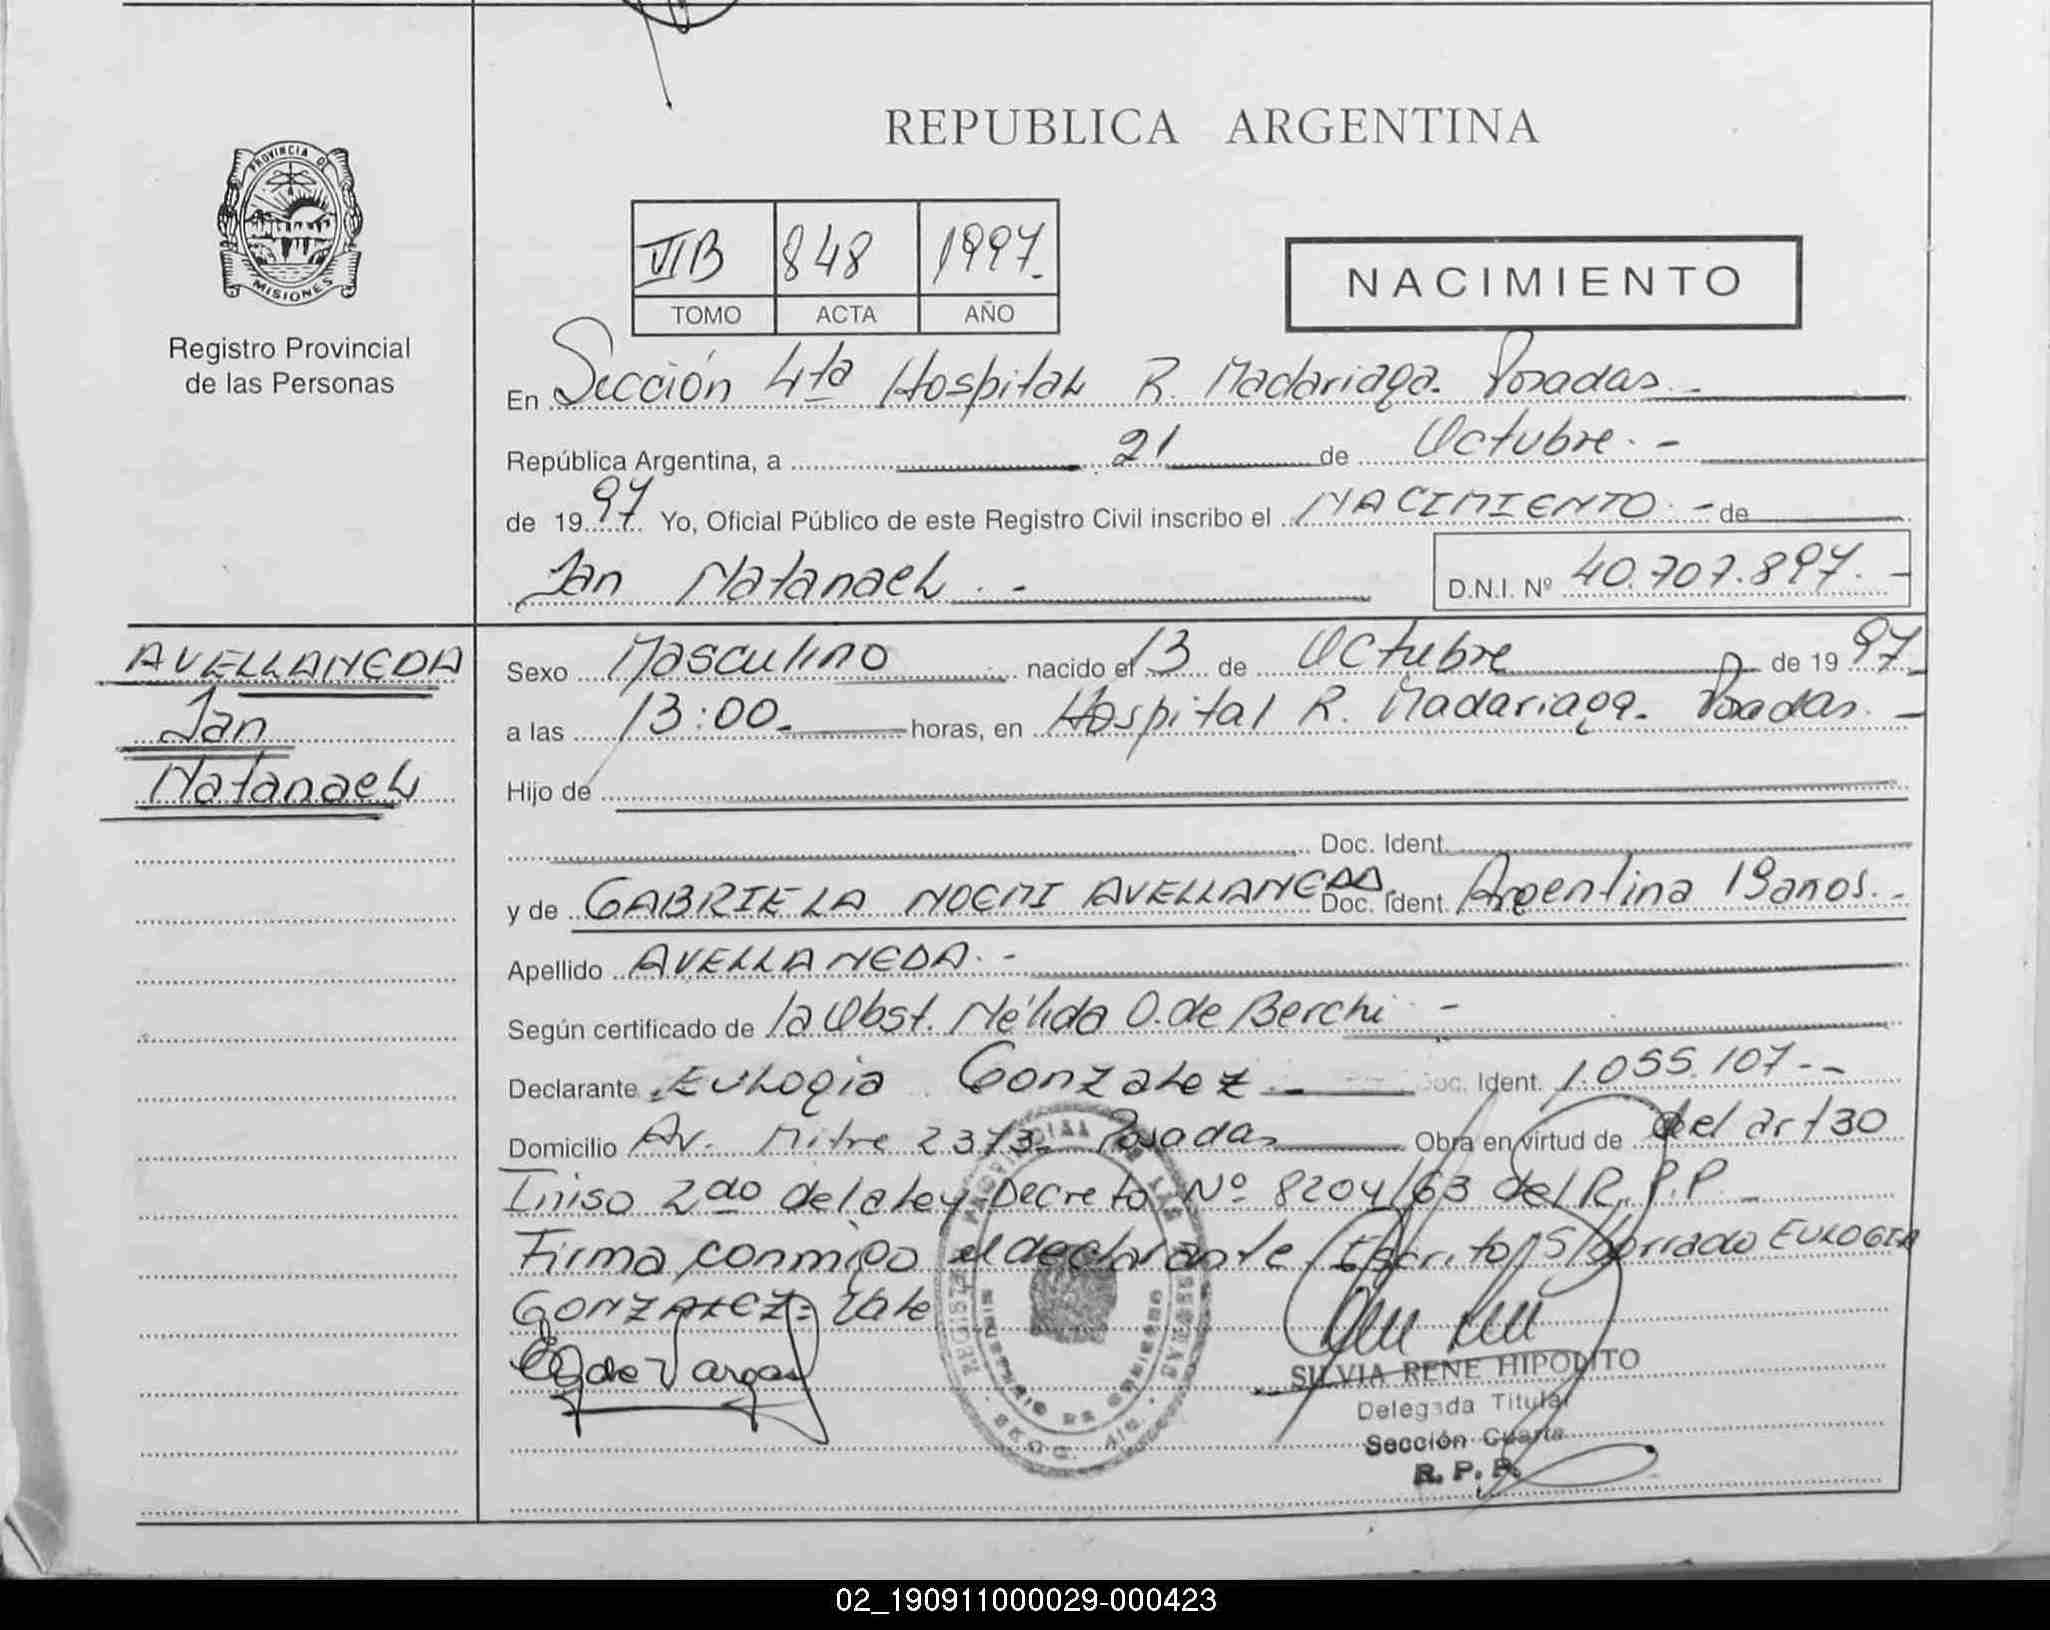 REPUBLICA ARGENTINA
PROVINCIA DE
MISIONES
Registro Provincial
de las Personas
VIB 848 1997.
TOMO ACTA AÑO
NACIMIENTO
En Sección 4ta Hospital R. Madariaga. Posadas.-
República Argentina, a 21 de Octubre.-
de 1997. Yo, Oficial Público de este Registro Civil inscribo el NACIMIENTO.- de
Ian Natanael.-
D.N.I. Nº 40.707.897.-
AVELLANEDA
Ian
Natanael
Sexo Masculino nacido el 13 de Octubre de 1997
a las 13:00.- horas, en Hospital R. Madariaga. Posadas.-
Hijo de
Doc. Ident.
y de GABRIELA NOEMI AVELLANEDA Doc. Ident. Argentina 19 anos.-
Apellido AVELLANEDA.-
Según certificado de la Obst. Nélida O. de Berchi.-
Declarante Eulogia Gonzalez.- Doc. Ident. 1.055.107.--
Domicilio Av. Mitre 2373- Posadas Obra en virtud de del art 30
Iniso 2do de la ley-Decreto Nº 8204/63 del R.P.P.-
Firma conmigo el declarante Escrito S/borrado EULOGIA
GONZALEZ: Vale
EG de Vargas
SILVIA RENE HIPOLITO
Delegada Titular
Sección Cuarta
R. P. P.
02_190911000029-000423